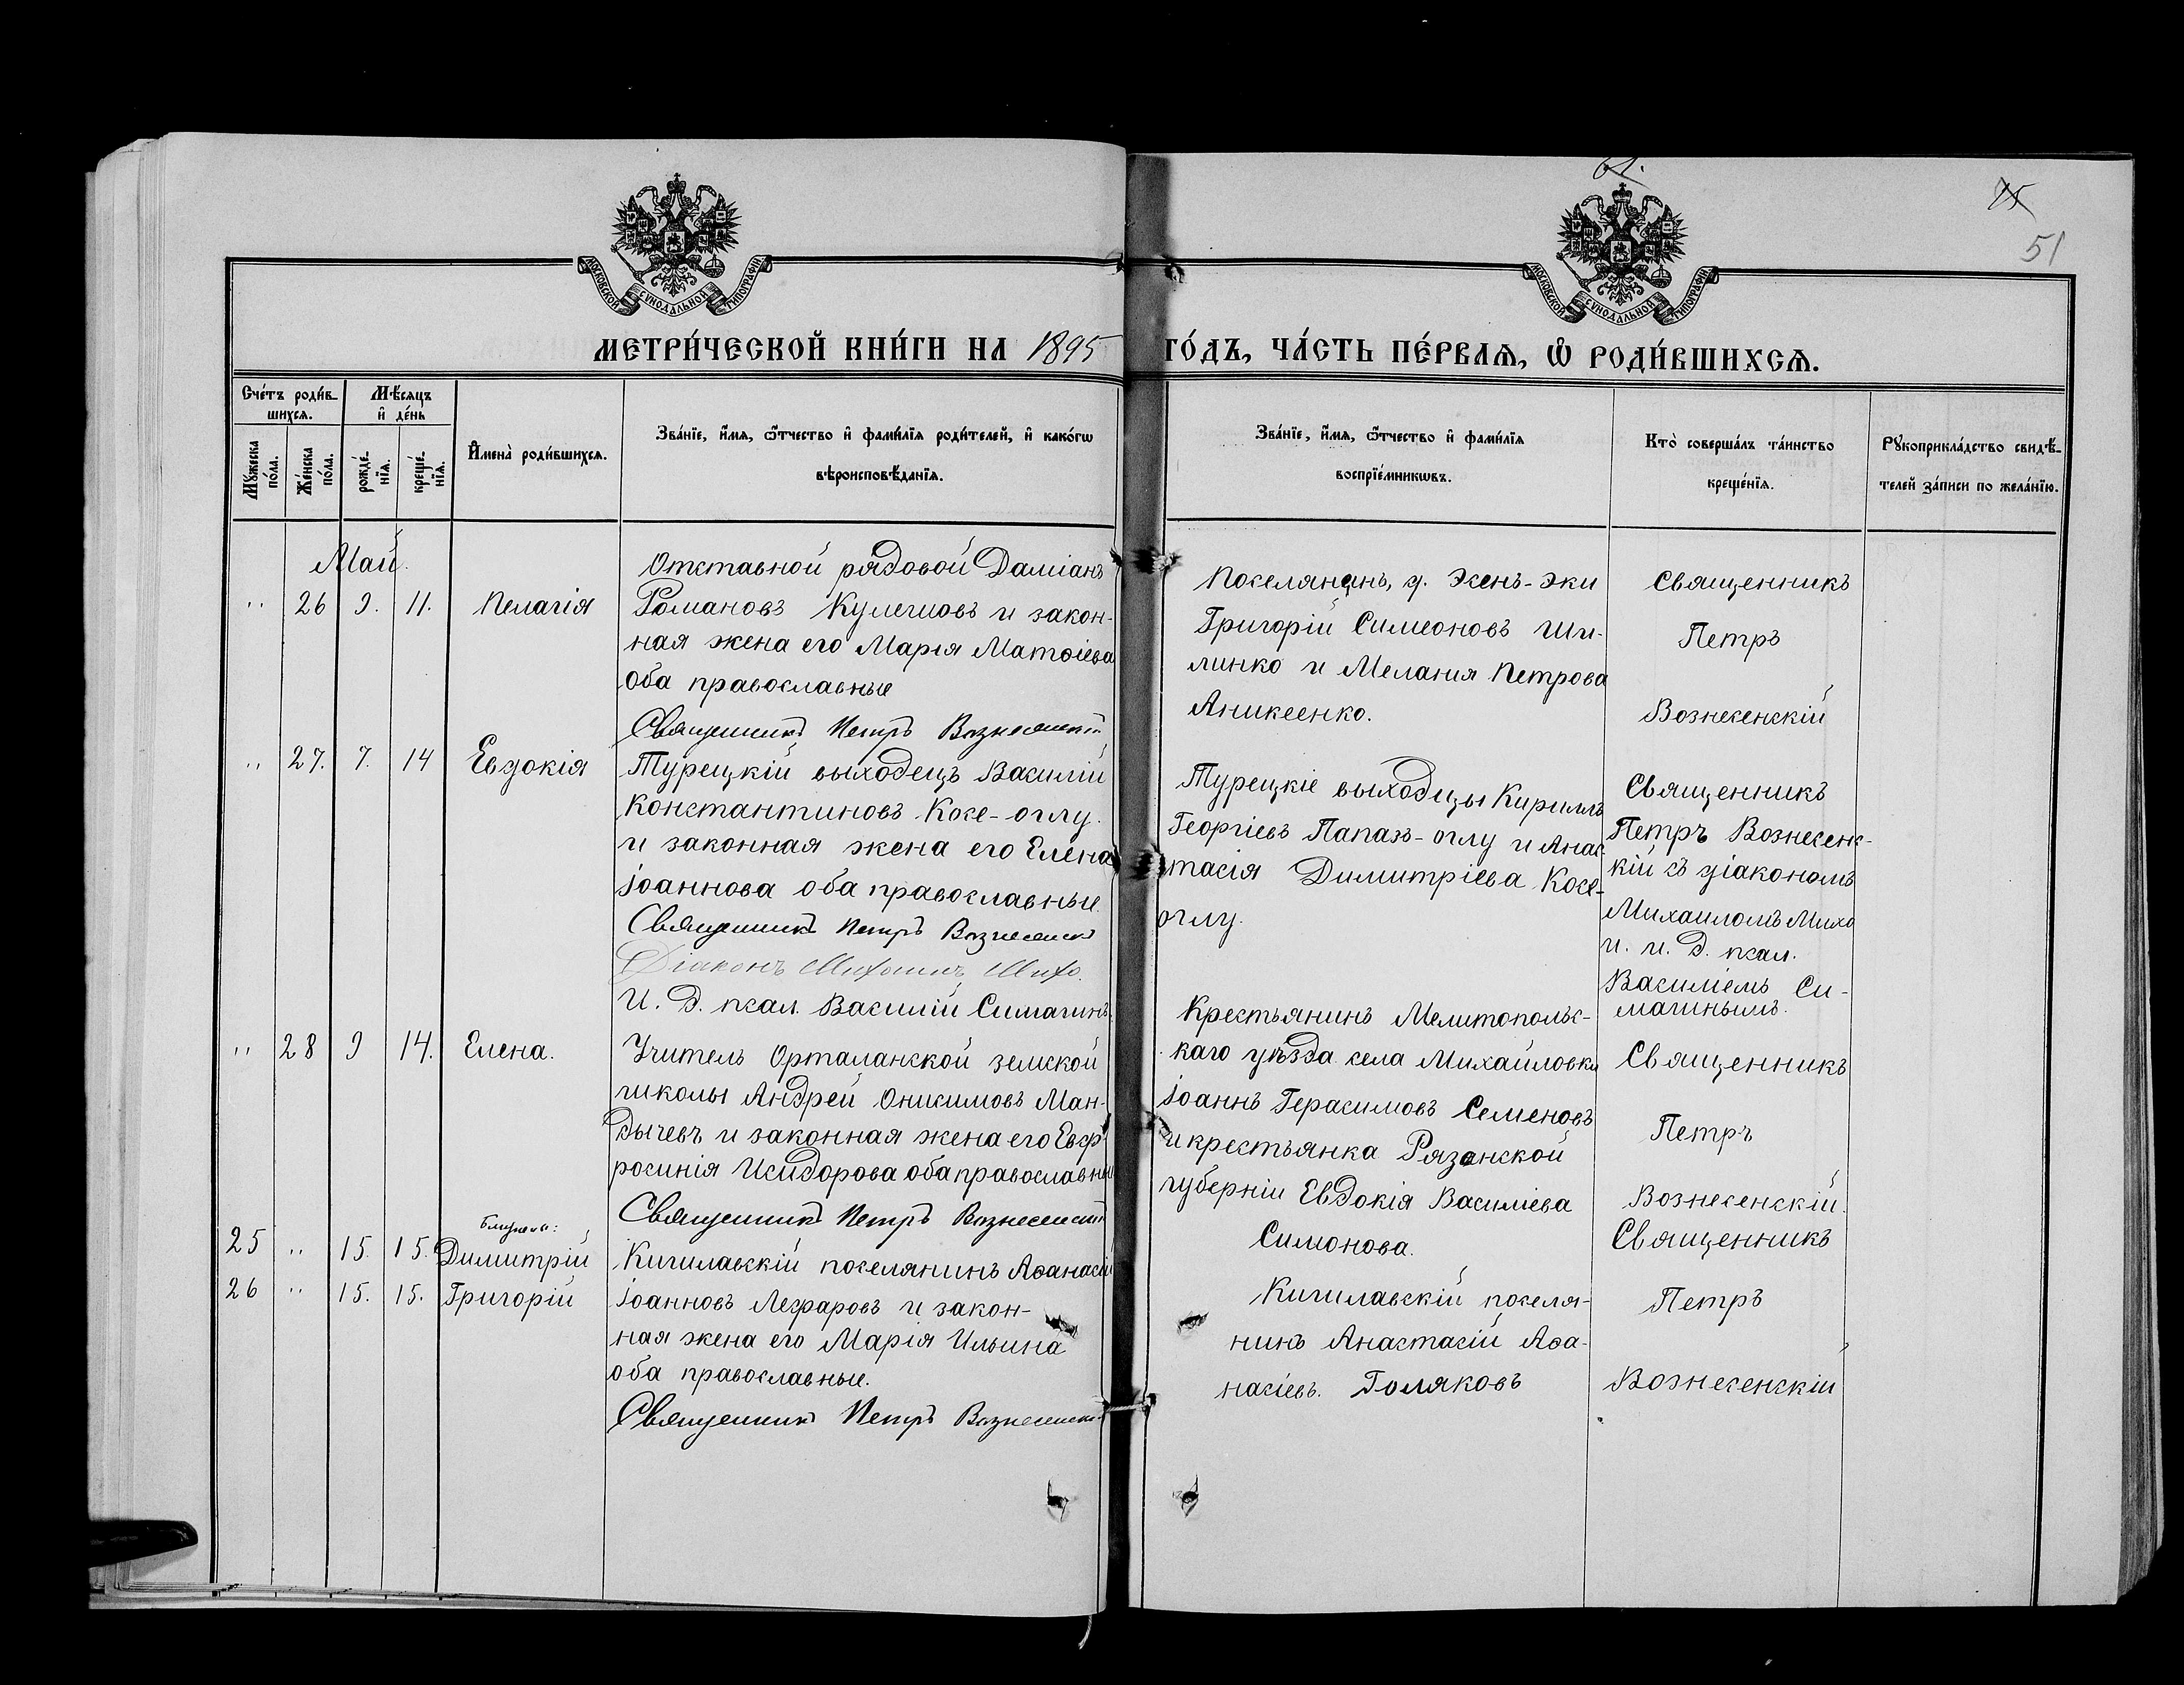 61.
75
51
МОСКОВСКОЙ СѴНОДАЛЬНОЙ ТИПОГРАФІИ
МОСКОВСКОЙ СѴНОДАЛЬНОЙ ТИПОГРАФІИ
МЕТРИ́ЧЕСКОЙ КНИ́ГИ НА 1895 ГО́ДЪ, ЧА́СТЬ ПЕ́РВАѦ, Ѡ РОДИ́ВШИХСѦ.
Сче́тъ роди́в-
шихсѧ.
Мꙋжеска по́ла.
Же́нска по́ла.
Мѣ́сѧцъ
и҆ де́нь
рожде́-нїѧ.
креще́-нїѧ.
И҆мена̀ роди́вшихсѧ.
Зва́нїе, и҆́мѧ, ѻ҆́тчество и҆ фами́лїѧ роди́телей, и҆ како́гѡ
вѣроисповѣ́данїѧ.
Зва́нїе, и҆́мѧ, ѻ҆́тчество и҆ фами́лїѧ
воспрїе́мникѡвъ.
Кто̀ соверша́лъ та́инство
креще́нїѧ.
Рꙋкоприкла́дство свидѣ́-
телей за́писи по жела́нїю.
Май.
" 26 9. 11. Пелагія
Отставной рядовой Даміанъ
Романовъ Кулешовъ и закон-
ная жена его Марія Матѳіева
оба православные
Священникъ Петръ Вознесенскій
Поселянинъ, д. Эсенъ-Эки
Григорій Симеоновъ Ши-
линко и Мелания Петрова
Аникеенко.
Священникъ
Петръ
Вознесенскій
" 27. 7. 14 Евдокія
Турецкій выходецъ Василій
Константиновъ Косе-оглу.
и законная жена его Елена
Іоаннова оба православные.
Священникъ Петръ Вознесенск
Діаконъ Михаилъ Михо.
И. д. псал. Василій Симагинъ.
Турецкіе выходцы Кириллъ
Георгіевъ Папазъ-оглу и Анас-
тасія Димитріева Косе-
оглу.
Священникъ
Петръ Вознесенс-
кій съ діакономъ
Михаиломъ Михо
и. и. д. псал.
Василіемъ Си-
магинымъ.
" 28 9 14. Елена.
Учитель Орталанской земской
школы Андрей Онисимовъ Ман-
дычевъ и законная жена его Евф-
росинія Исидорова оба православные
Священникъ Петръ Вознесенскій
Крестьянинъ Мелитопольс-
каго уѣзда села Михайловки
Іоаннъ Герасимовъ Семеновъ
и крестьянка Рязанской
губерніи Евдокія Василіева
Симонова.
Священникъ
Петръ
Вознесенскій.
Близнецы:
25 " 15. 15. Димитрій
26 " 15. 15. Григорій
Кишлавскій поселянинъ Аѳанасій
Іоанновъ Лефаровъ и закон-
ная жена его Марія Ильина
оба православные.
Священникъ Петръ Вознесенск
Кишлавскій поселя-
нинъ Анастасій Аѳа-
насіевъ. Голяковъ
Священникъ
Петръ
Вознесенскій